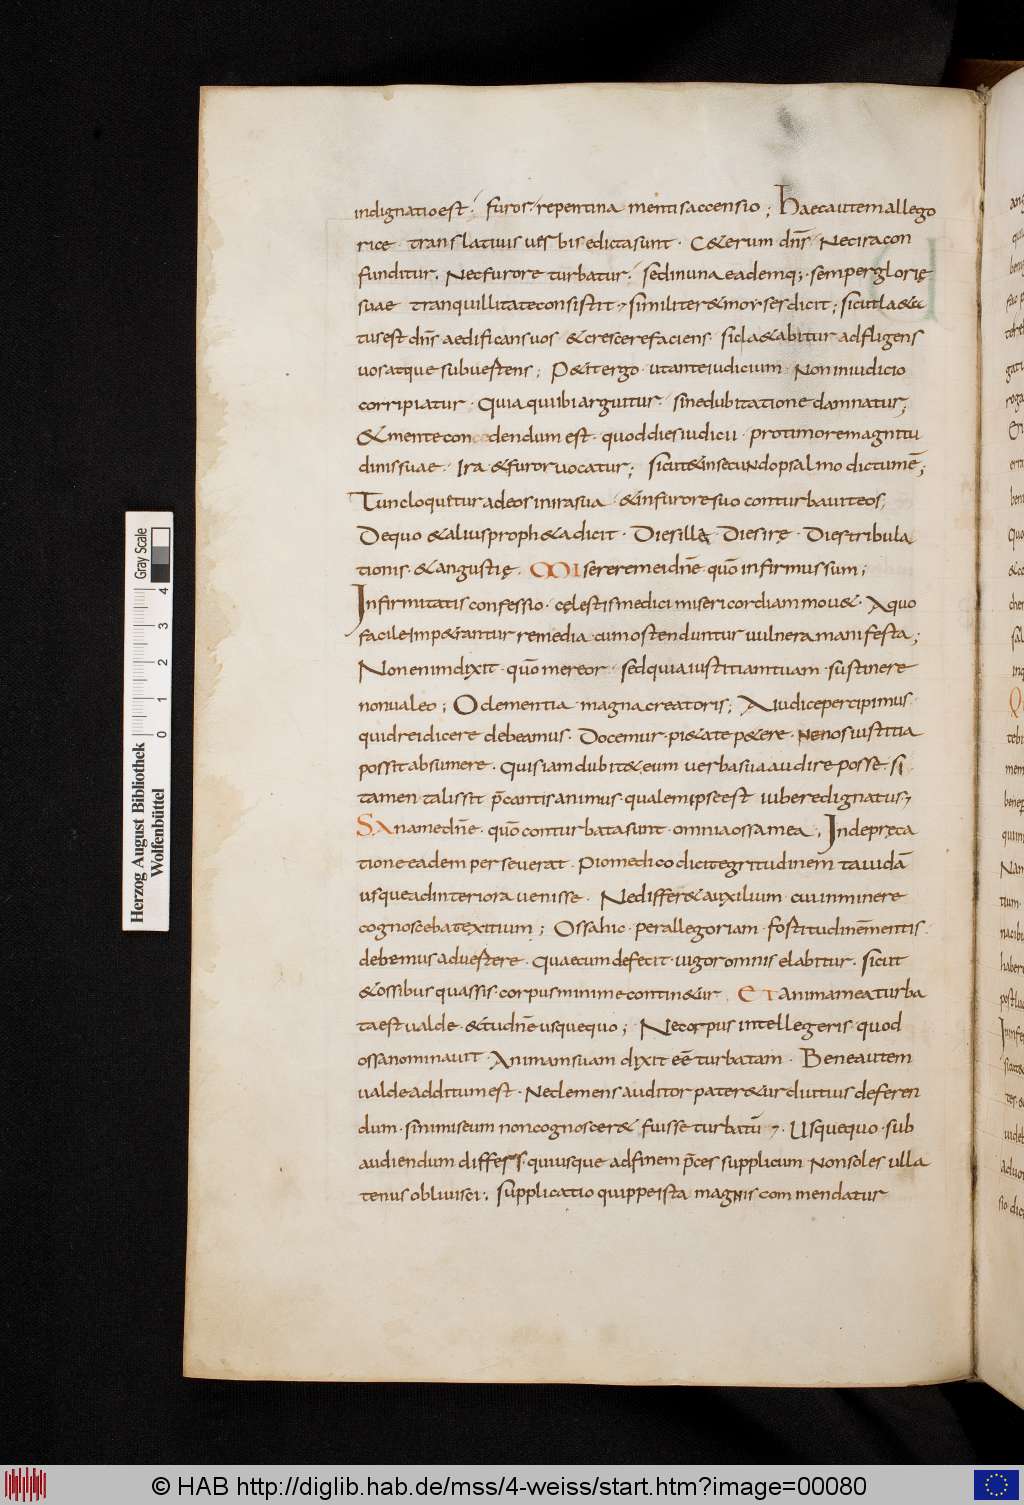 indignatio est · furor · repentina mentis accensio ; Haec autem allego
rice translativis verbis edicta sunt · Ceterum dn̄s Nec ira con
funditur · Nec furore turbatur · sed in una eademq; · semper glorię
suae tranquillitate consistit · similiter & moyses dicit ; sicut la&a
tus est dn̄s aedificans vos & crescere faciens · sic la&abitur adfligens
vos atque subvertens ; P&it ergo · ut ante iudicium · Non in iudicio
corripiatur · Quia qui ibi arguitur · sine dubitatione damnatur ;
& mente concedendum est · quod dies iudicii · pro timore magnitu
dinis suae · Ira & furor vocatur ; sicut & in secundo psalmo dictum ē ;
Tunc loqu&ur ad eos in ira sua · & in furore suo conturbavit eos ;
De quo & alius proph&a dicit · Dies illa · Dies irę · Dies tribula
tionis · & angustię · Miserere mei dn̄e · quō infirmus sum ;
Infirmitatis confessio · cęlestis medici misericordiam mov& · A quo
facile imp&rantur remedia · cum ostenduntur vulnera manifesta ;
Non enim dixit · quō mereor · sed quia iustitiam tuam · sustinere
non valeo ; O clementia magna creatoris ; A iudice percipimus ·
quid rei dicere debeamus · Docemur pi&ate p&ere · ne nos iustitia
possit absumere · Quis iam dubit& eum verba sua audire posse · si
tamen talis sit p̄cantis animus · qualem ipse est iubere dignatus ·
Sana me dn̄e · quō conturbata sunt · omnia ossa mea ; In depręca
tione eadem perseverat · Pio medico dicit egritudinem tavidā
usque ad interiora venisse · Ne differ& auxilium · cui inminere
cognoscebat exitium ; Ossa hic · per allegoriam · fortitudinē mentis ·
debemus advertere · Quae cum defecit · vigor omnis elabitur · sicut
& ossibus quassis · corpus minime contin&ur · Et anima mea turba
ta est valde · & tu dn̄e usquequo ; Ne corpus intellegeris · quod
ossa nominavit · Animam suam dixit eē turbatam · Bene autem
valde additum est · Ne clemens auditor pater&ur diutius deferen
dum · si nimis eum non cognoscer& fuisse turbatū · Usquequo · sub
audiendum differs · qui usque ad finem p̄ces supplicum Non soles ulla
tenus oblivisci ; supplicatio quippe ista magnis commendatur
Herzog August Bibliothek
Wolfenbüttel
Gray Scale
0 1 2 3 4
© HAB http://diglib.hab.de/mss/4-weiss/start.htm?image=00080